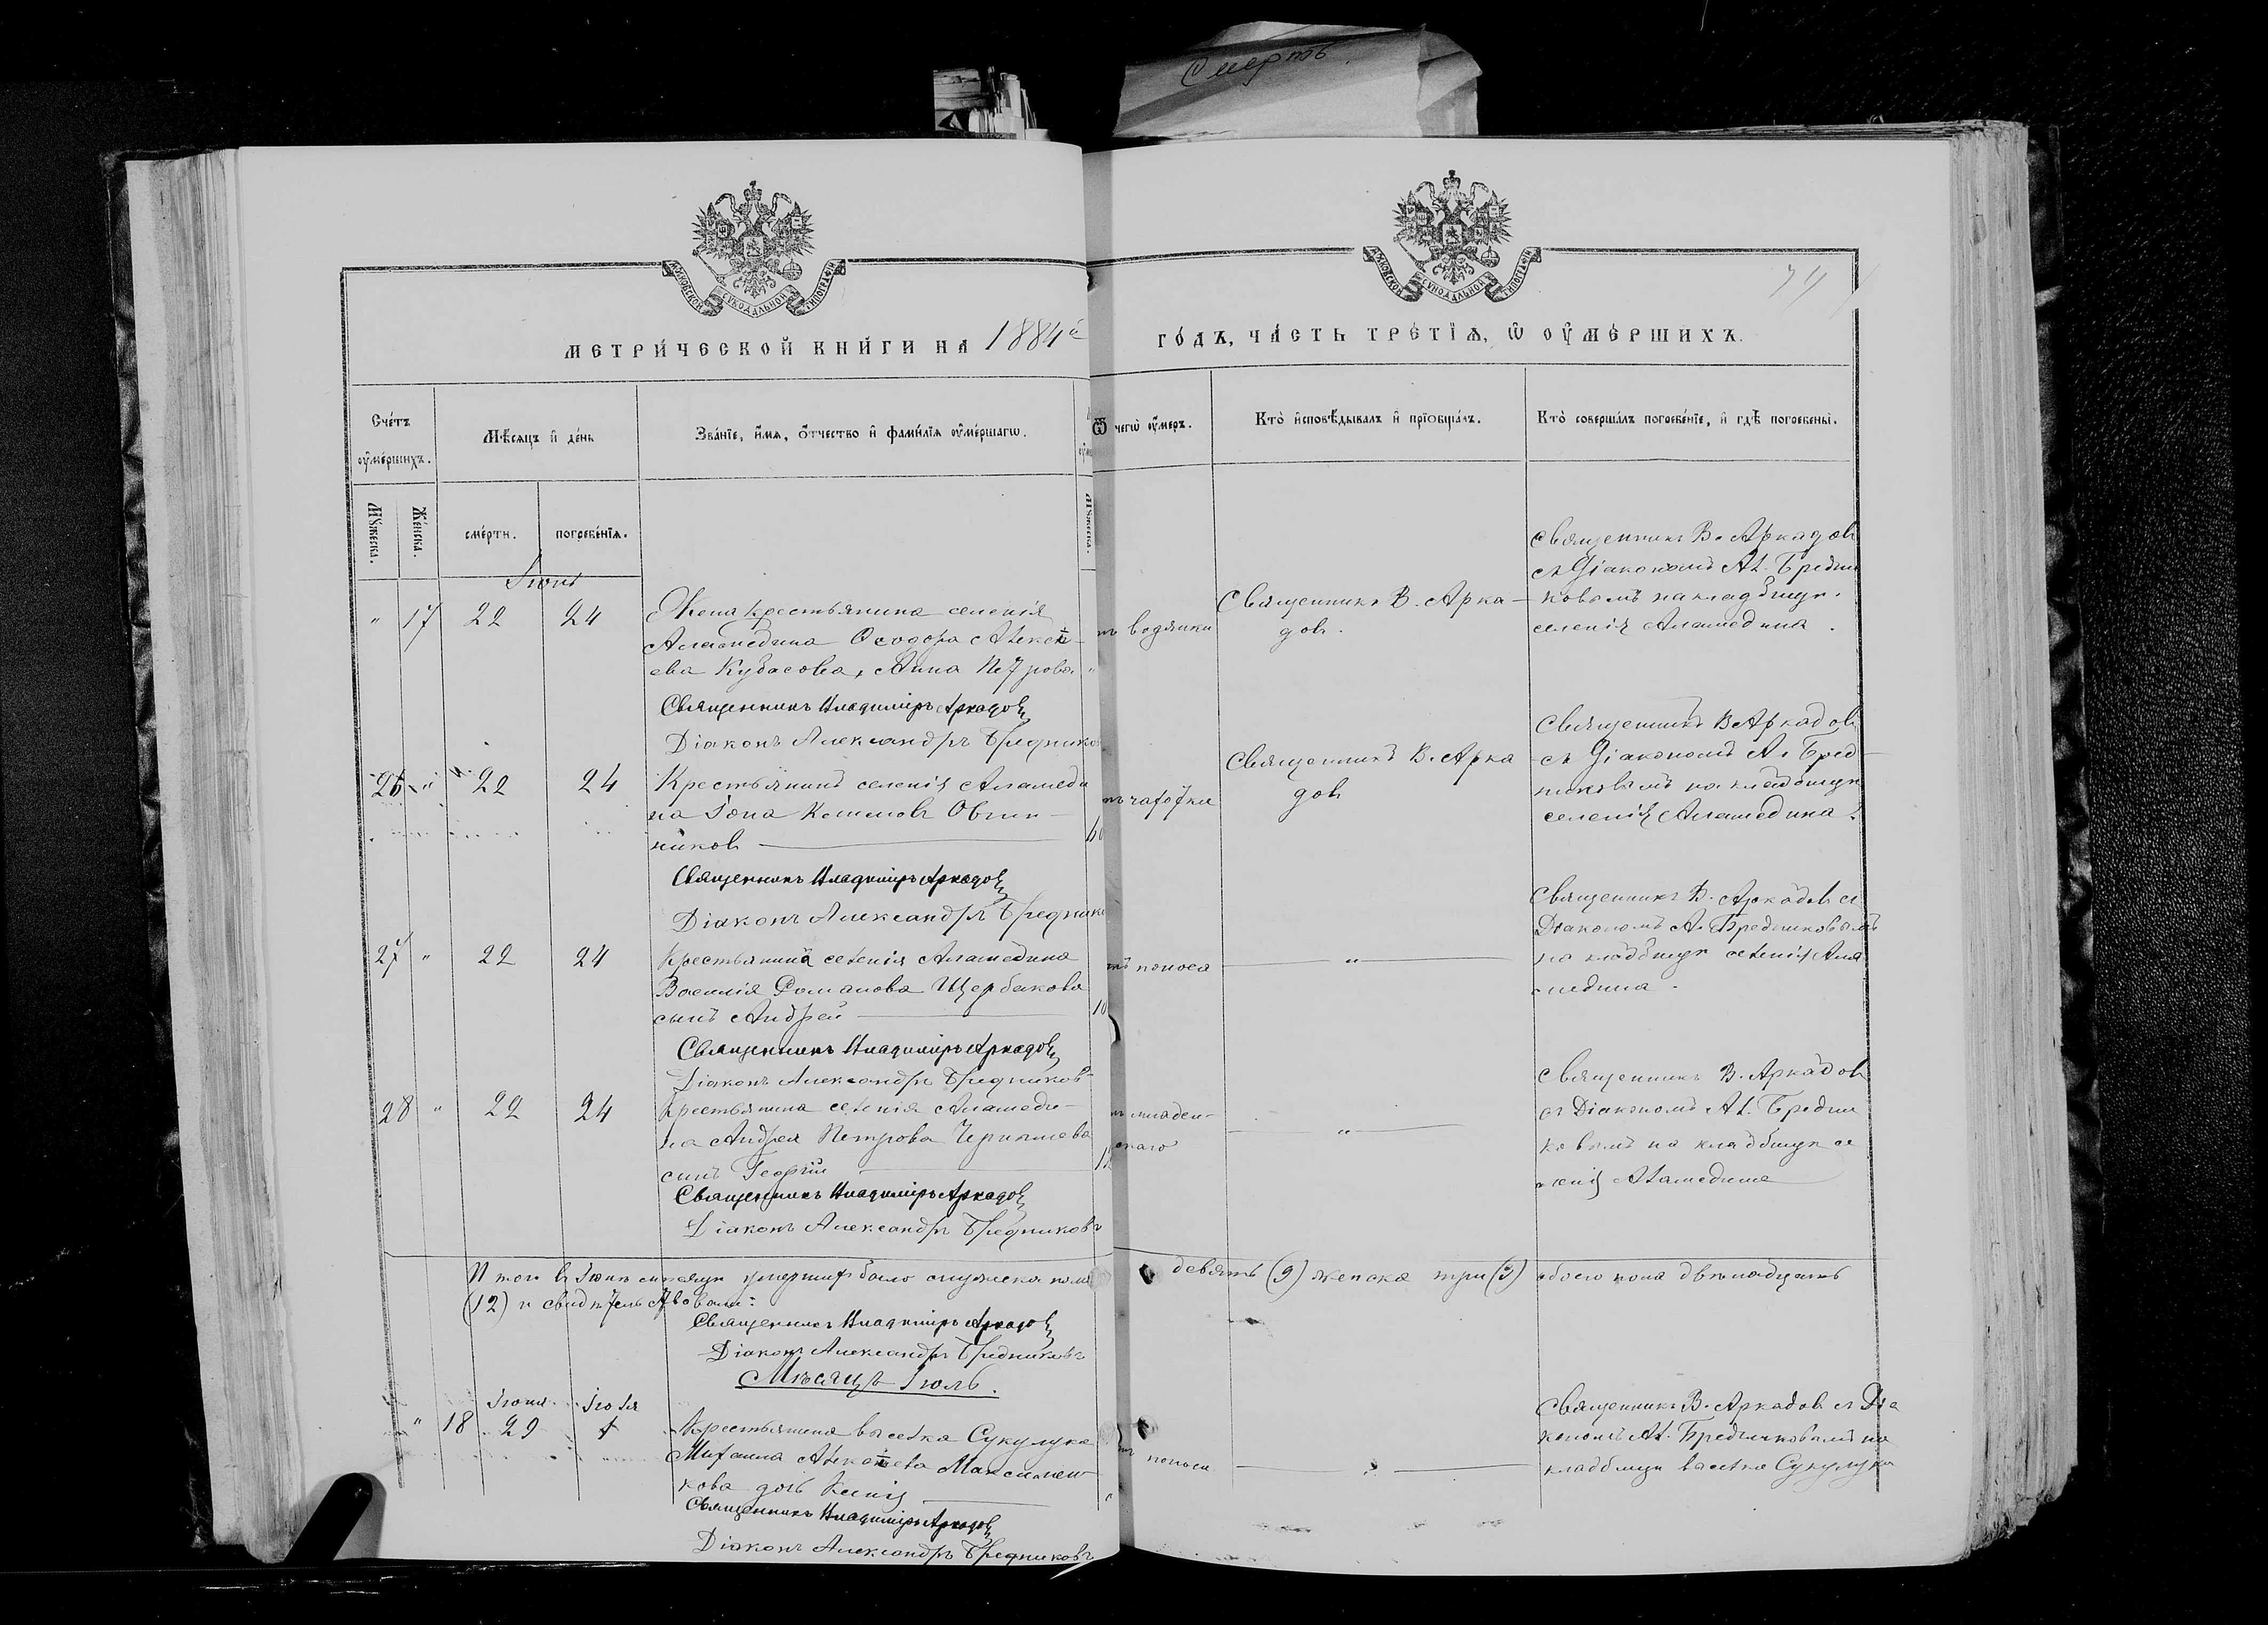 Смерть.
МОСКОВСКОЙ СѴНОДАЛЬНОЙ ТИПОГРАФІИ
МОСКОВСКОЙ СѴНОДАЛЬНОЙ ТИПОГРАФІИ
МЕТРИ́ЧЕСКОЙ КНИ́ГИ НА 1884й
ГО́ДЪ, ЧА́СТЬ ТРЕ́ТІѦ, Ѡ ОУ҆МЕ́РШИХЪ.
Сче́тъ оу҆ме́ршихъ.
Мѣ́сяцъ и҆ де́нь
Зва́нїе, и҆́мѧ, ѻ҆́тчество и҆ фами́лїѧ оу҆ме́ршагѡ.
Ѿ чегѡ̀ оу҆́меръ.
Кто̀ и҆сповѣ́дывалъ и҆ прїобща́лъ.
Кто̀ соверша́лъ погребе́нїе, и҆ гдѣ̀ погребены̀.
Мꙋ́жеска.
Же́нска.
сме́рти.
погребе́нїѧ.
Мꙋ́жеска.
Іюнь
" 17 22 24
Жена крестьянина селенія
Аламедина Ѳеодора Алексѣ-
ева Кубасова, Анна Петрова "
Священникъ Владиміръ Аркадовъ
Діаконъ Александръ Бредников
тъ водянки
Священникъ В. Арка-
довъ.
Священникъ В. Аркадовъ
съ Діакономъ Ал. Бредни
ковымъ на кладбищѣ.
селенія Аламедина.
26 " 22 24
Крестьянинъ селенія Аламеди
на Іона Овчин-
никовъ
Священникъ Владиміръ Аркадовъ
Діаконъ Александръ Бреднико
тъ чахотки
Священникъ В. Арка
довъ
Священникъ В. Аркадовъ
съ Діакономъ А. Бред-
никовымъ на кладбищѣ
селенія Аламедина.
27 " 22 24
Крестьянина селенія Аламедина
Василія Романова Щербакова
сынъ Андрей
10
Священникъ Владиміръ Аркадовъ
Діаконъ Александръ Бредниковъ
тъ поноса
"
Священникъ В. Аркадовъ съ
Діакономъ А. Бредниковымъ
на кладбищѣ селенія Ала
медина.
28 " 22 24
Крестьянина селенія Аламеди-
на Андрея Петрова
сынъ Георгій
Священникъ Владиміръ Аркадовъ
Діаконъ Александръ Бредниковъ
ъ младен-
скаго
"
Священникъ В. Аркадовъ
съ Діакономъ Ал. Бредни
ковымъ на кладбищѣ се
ленія Аламедина
Итого въ Іюнѣ мѣсяцѣ умершихъ было мужеска пола девять (9) женска три (3) обоего пола двѣнадцать
(12) и свидѣтельствовали:
Священникъ Владиміръ Аркадовъ
Діаконъ Александръ Бредниковъ
Мѣсяцъ Іюль.
Іюня Іюля
" 18 29 1
Крестьянина выселка Сукулука
Михаила Алексѣева Максимен-
кова дочь
Священникъ Владиміръ Аркадовъ
Діаконъ Александръ Бредниковъ
тъ поноса
"
Священникъ В. Аркадовъ съ Діа
кономъ Ал. Бредниковымъ на
кладбищѣ выселка Сукулука